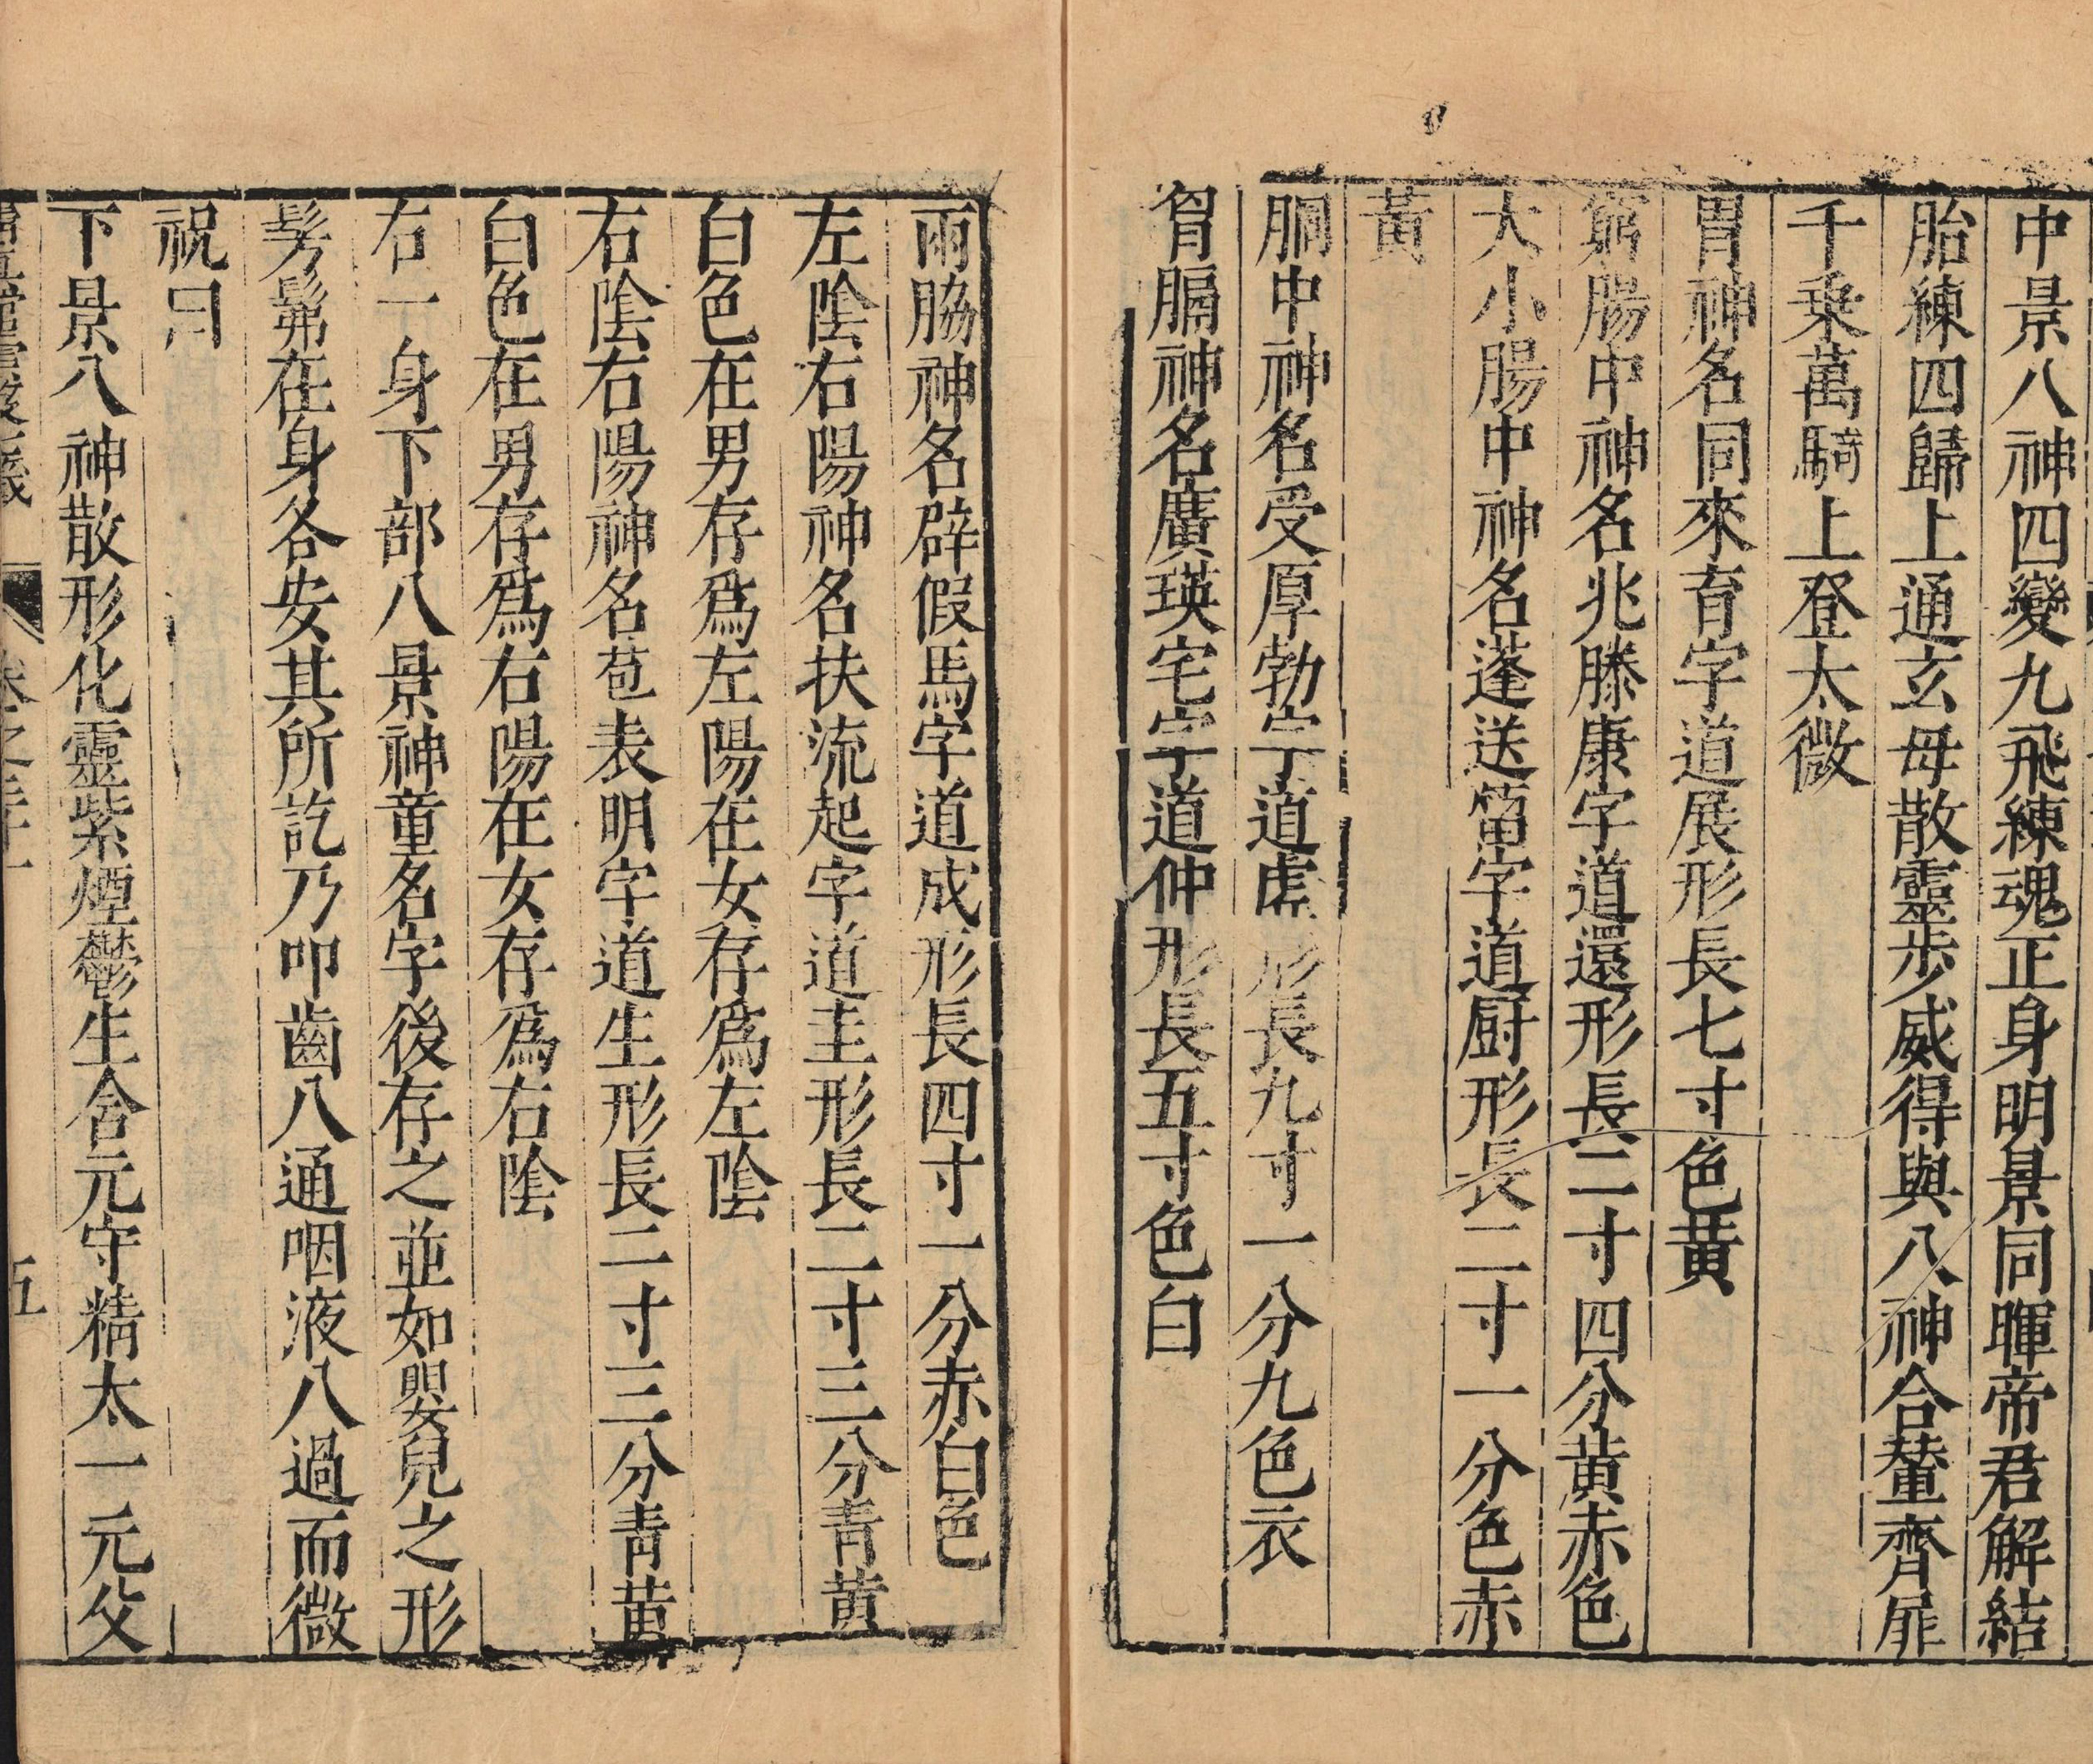 中景八神四變九飛練魂正身明景同暉帝君解結
胎練四歸上通玄母散靈步威得與八神合輦齊扉
千乗萬騎上登太微
胃神名同來育字道展形長七寸色黃
窮腸中神名兆滕康字道還形長二寸四分黃赤色
大小腸中神名蓬送留字道厨形長二寸一分色赤
黃
胴中神名受厚勃字道虛形長九寸一分九色衣
胷膈神名廣瑛宅字道仲形長五寸色白
兩脇神名辟假馬字道成形長四寸一分赤白色
左陰右陽神名扶流起字道圭形長二寸三分青黃
白色在男存爲左陽在女存爲左陰
右陰右陽神名苞表明字道生形長二寸三分青黃
白色在男存爲右陽在女存爲右陰
右一身下部八景神童名字後存之並如嬰兒之形
髣髴在身各安其所訖乃叩齒八通咽液八過而微
祝曰
下景八神散形化靈紫煙鬱生含元守精太一元父
卷之三十一
五